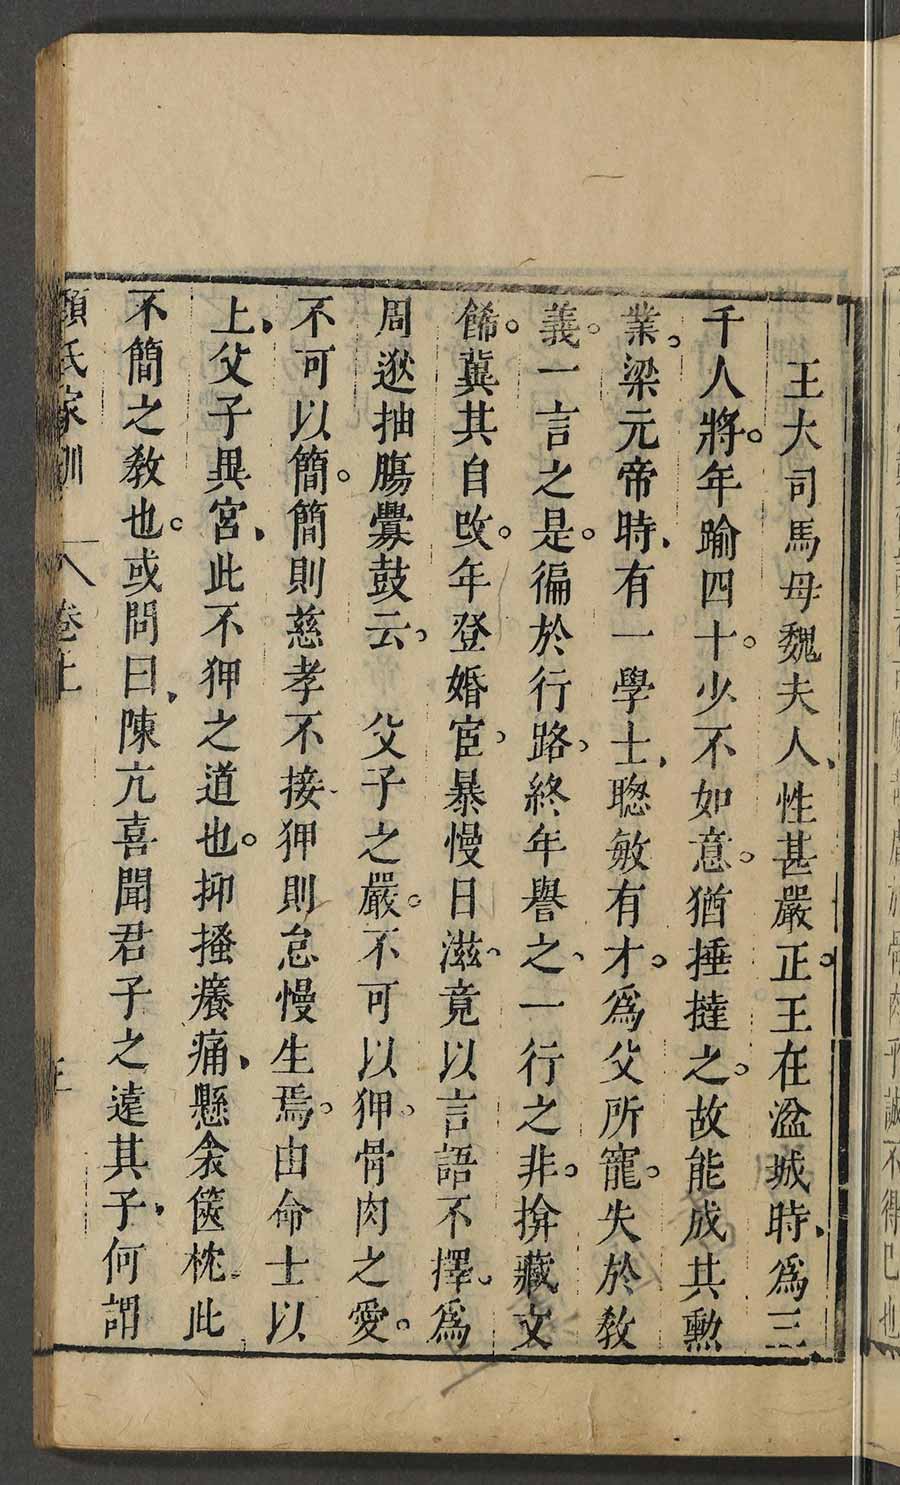 王大司馬母魏夫人、性甚嚴正。王在湓城時、爲三
千人將。年踰四十。少不如意。猶捶撻之。故能成其勳
業。梁元帝時、有一學士、聰敏有才。爲父所寵。失於教
義。一言之是。徧於行路、終年譽之、一行之非。揜藏文
餙。冀其自攺。年登婚宦、暴慢日滋、竟以言語不擇、爲
周逖抽腸釁鼓云、 父子之嚴。不可以狎。骨肉之愛。
不可以簡。簡則慈孝不接、狎則怠慢生焉。由命士以
上、父子異宮、此不狎之道也。抑搔癢痛、懸衾篋枕、此
不簡之教也。或問曰、陳亢喜聞君子之遠其子、何謂
顏氏家訓 卷上